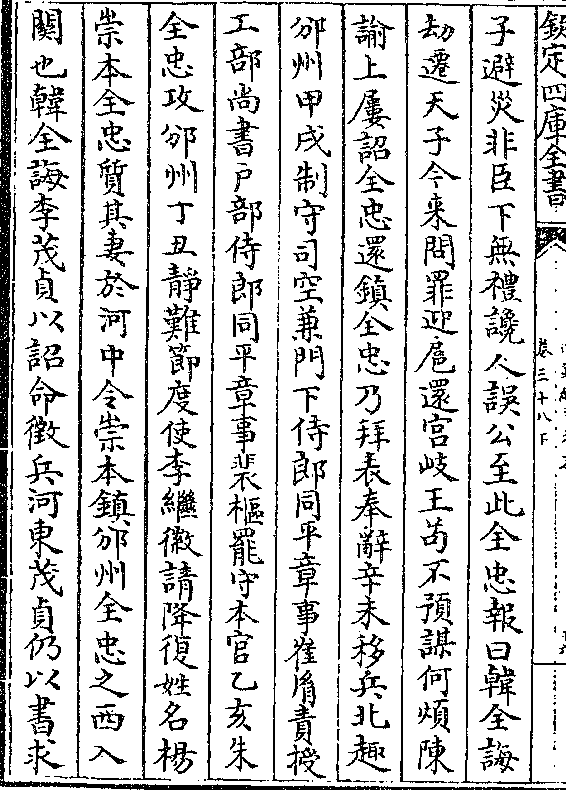 欽定四庫全書
卷三十八下
子避災非臣下無禮讒人誤公至此全忠報曰韓全誨
劫遷天子今来問罪迎扈還宫岐王苟不預謀何煩陳
諭上屢詔全忠還鎮全忠乃拜表奉辭辛未移兵北趣
邠州甲戌制守司空兼門下侍郎同平章事崔胤責授
工部尚書戸部侍郎同平章事裴樞罷守本官乙亥朱
全忠攻邠州丁丑靜難節度使李繼徽請降復姓名楊
崇本全忠質其妻於河中令崇本鎮邠州全忠之西入
關也韓全誨李茂貞以詔命徵兵河東茂貞仍以書求